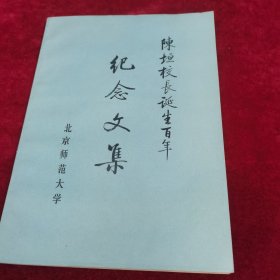 陳垣校長誕生百年
纪念文集
北京师范大学